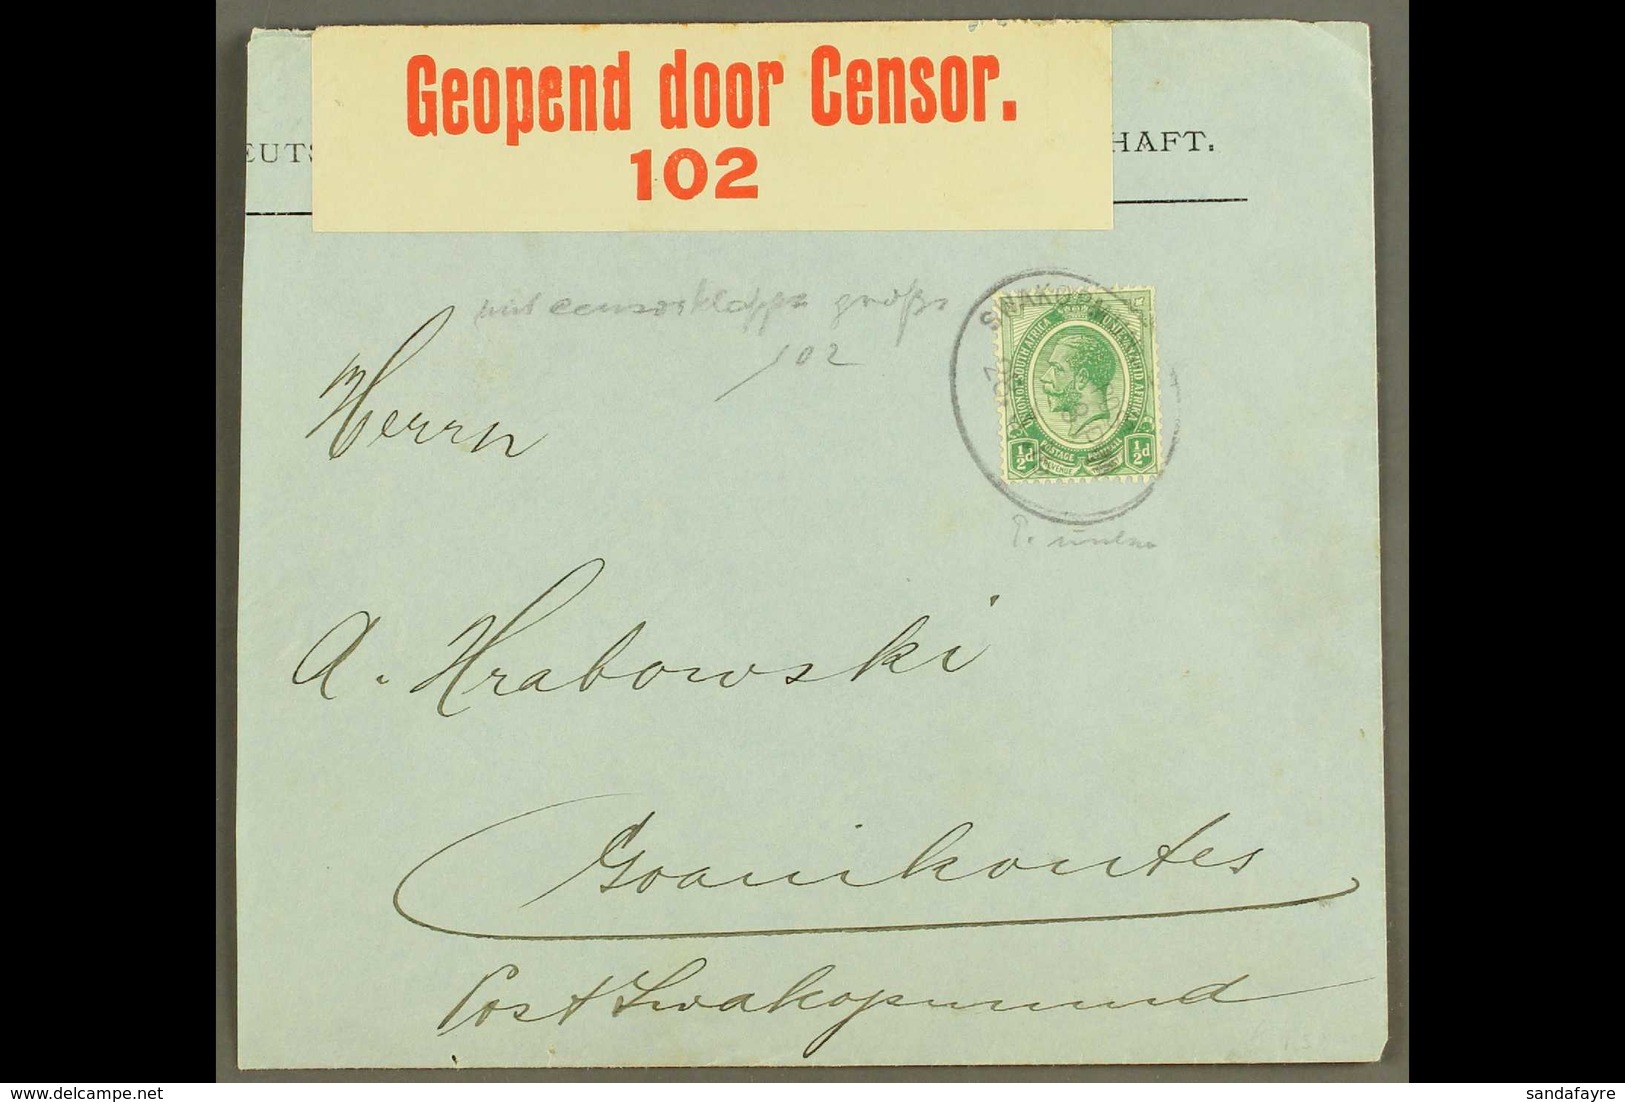 Geopend door Censor.
102
EUTS HAFT.
mit censorklappe große
102
SWAKOPMU
UNION OF SOUTH AFRICA UNIE VAN ZUID AFRIKA
½d POSTAGE REVENUE POSTZEGEL ½d
Herrn
A. Hrabowski
Goanikontes
Post Swakopmund
www.delcampe.net sandafayre